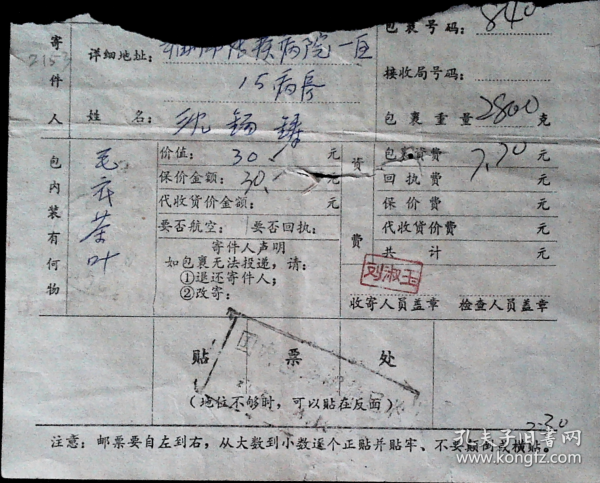 包裹号码：840
寄件人
2153
详细地址： 疾病院一区
15病房
接收局号码：
姓 名：沈锡
包裹重量 2800 克
包内装有何物
毛衣茶叶
价值：30 元
保价金额：30 元
代收货价金额： 元
要否航空： 要否回执：
寄件人声明
如包裹无法投递，请：
①退还寄件人；
②改寄：
资费
包裹资费 元
回执费 元
保价费 元
代收货价费 元
共计 元
刘淑玉
收寄人员盖章 检查人员盖章
贴票处
（地位不够时，可以贴在反面）
注意：邮票要自左到右，从大数到小数逐个正贴并贴牢、不要颠倒或横贴。
孔夫子旧书网
www.kongfz.com